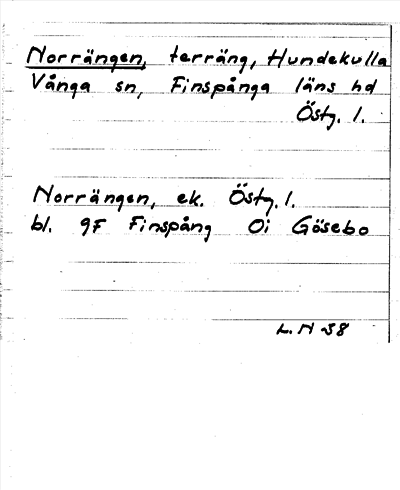 Norrängen, terräng, Hundekulla
Vånga sn, Finspånga läns hd
Östg. l.
Norrängen, ek. Östg. l.
bl. 9F Finspång 0i Gösebo
L. N 38